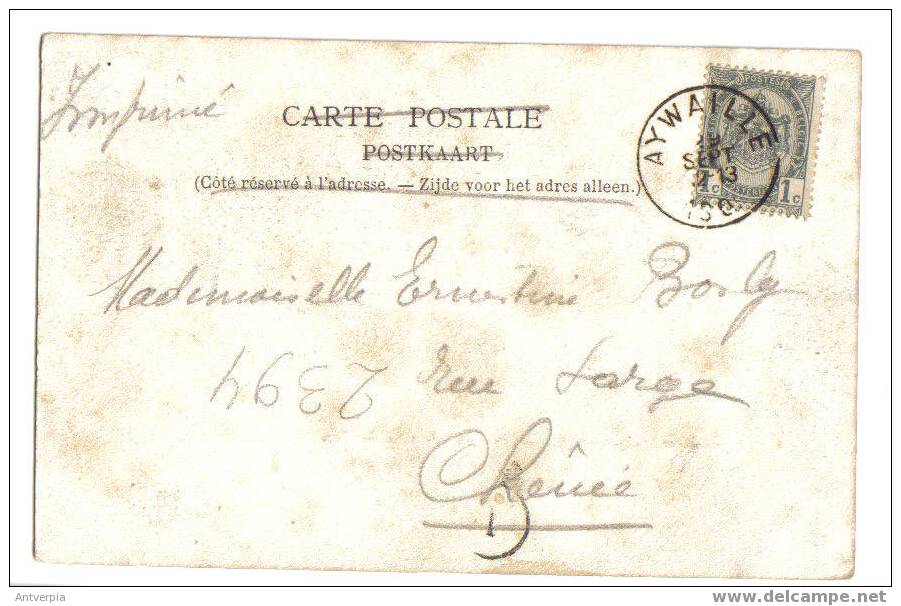 Imprimé
CARTE POSTALE
POSTKAART
(Côté réservé à l'adresse. — Zijde voor het adres alleen.)
POSTES
1c
AYWAILLE
SEPT
Mademoiselle Ernestine Bosly
2394 rue Large
Chênée
1
Antverpia
www.delcampe.net